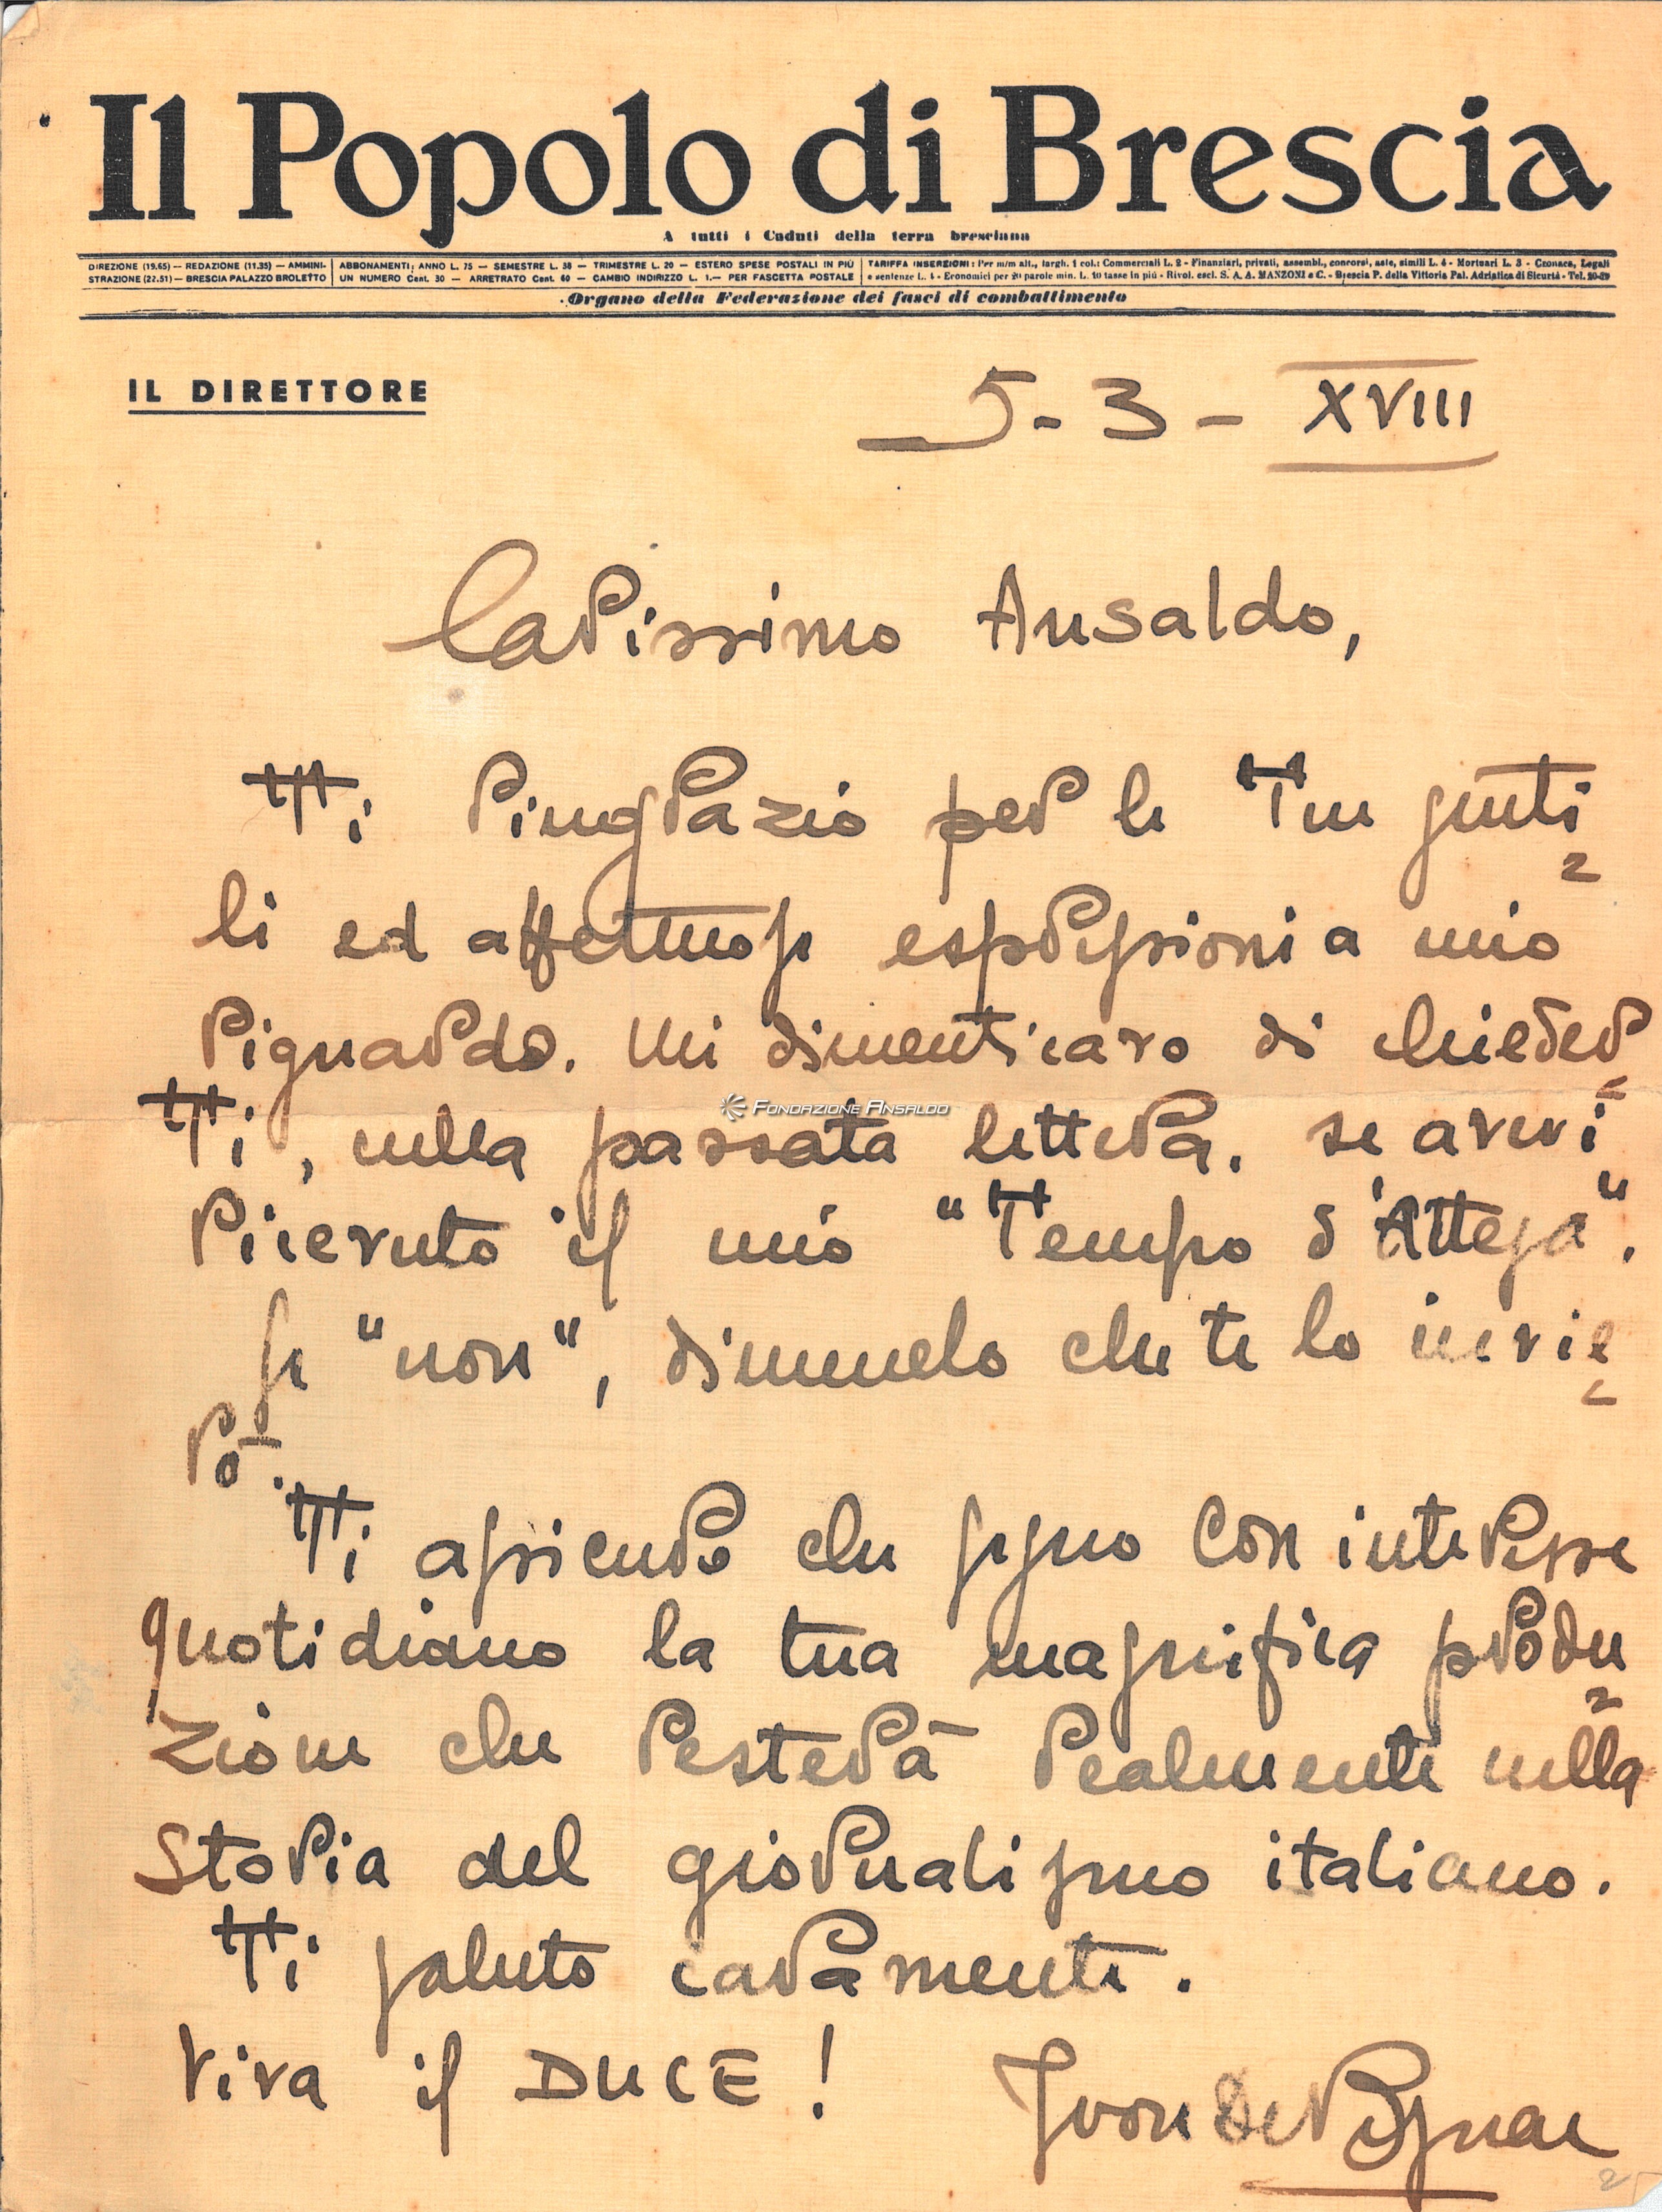 Il Popolo di Brescia
A tutti i Caduti della terra bresciana
DIREZIONE (19.65) — REDAZIONE (11.35) — AMMINI-
STRAZIONE (22.51) — BRESCIA PALAZZO BROLETTO
ABBONAMENTI: ANNO L. 75 — SEMESTRE L. 38 — TRIMESTRE L. 20 — ESTERO SPESE POSTALI IN PIÚ
UN NUMERO Cent. 30 — ARRETRATO Cent. 60 — CAMBIO INDIRIZZO L. 1.— PER FASCETTA POSTALE
TARIFFA INSERZIONI: Per m/m alt., largh. 1 col.: Commerciali L. 2 - Finanziari, privati, assembl., concorsi, aste, simili L. 4 - Mortuari L. 3 - Cronaca, Legali
e sentenze L. 4 - Economici per 20 parole min. L. 10 tasse in più - Rivol. escl. S. A. A. MANZONI e C. - Brescia P. della Vittoria Pal. Adriatica di Sicurtà - Tel. 20-29
Organo della Federazione dei fasci di combattimento
IL DIRETTORE
5-3-XVIII
Carissimo Ansaldo,
Ti ringrazio per le Tue genti=
li ed affettuose espressioni a mio
riguardo. Mi dimenticavo di chieder=
Ti, nella passata lettera, se avevi
ricevuto il mio "Tempo d'Attesa".
Se "non", dimmelo che te lo invie=
rò.
Ti assicuro che seguo con interesse
quotidiano la tua magnifica produ=
zione che resterà realmente nella
storia del giornalismo italiano.
Ti saluto caramente.
Viva il DUCE!
Yvon De Begnac
FONDAZIONE ANSALDO
2